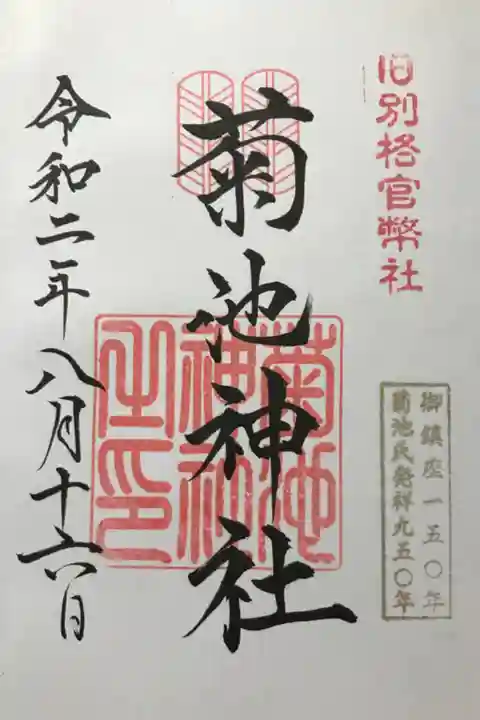 旧別格官幣社
御鎮座一五〇年
菊池氏発祥九五〇年
菊池神社
菊池
神社
之印
令和二年八月十六日